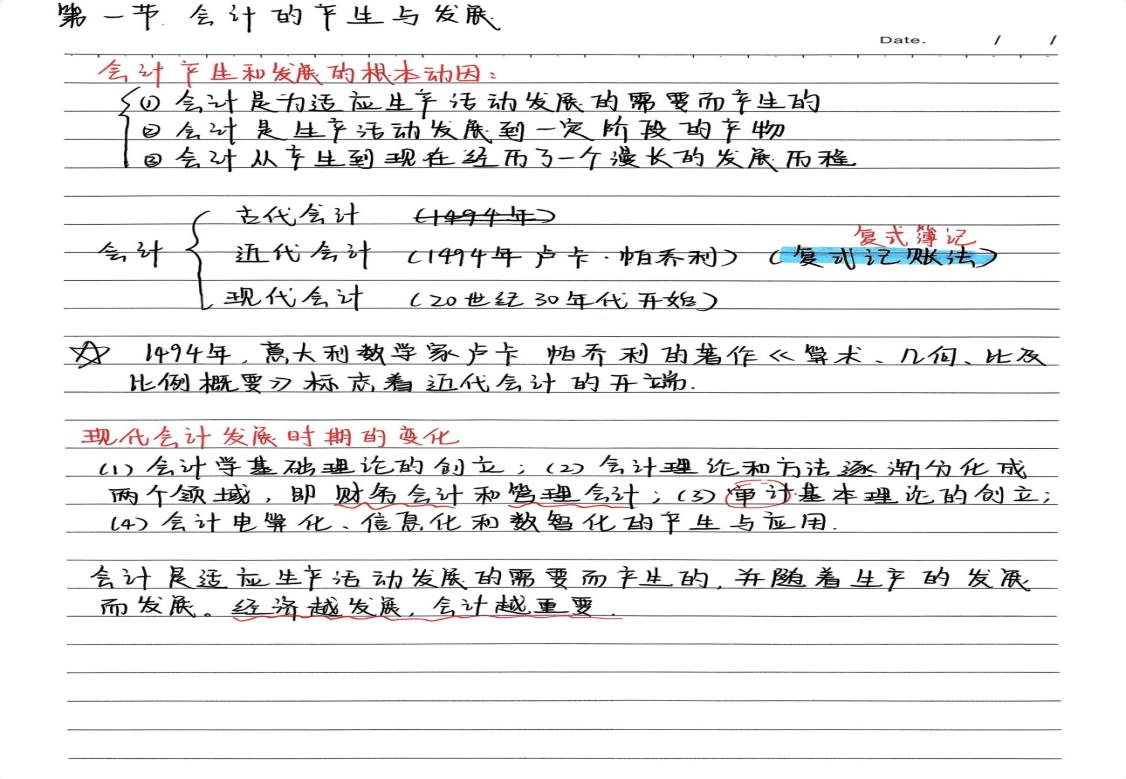 第一节 会计的产生与发展
Date. / /
会计产生和发展的根本动因:
① 会计是为适应生产活动发展的需要而产生的
② 会计是生产活动发展到一定阶段的产物
③ 会计从产生到现在经历了一个漫长的发展历程
古代会计 (1494年)
复式簿记
会计 近代会计 (1494年卢卡·帕乔利) (复式记账法)
现代会计 (20世纪30年代开始)
☆ 1494年,意大利数学家卢卡 帕乔利的著作《算术、几何、比及
比例概要》标志着近代会计的开端.
现代会计发展时期的变化
(1) 会计学基础理论的创立; (2) 会计理论和方法逐渐分化成
两个领域, 即 财务会计和管理会计; (3) 审计基本理论的创立;
(4) 会计电算化、信息化和数智化的产生与应用.
会计是适应生产活动发展的需要而产生的, 并随着生产的发展
而发展。经济越发展, 会计越重要.